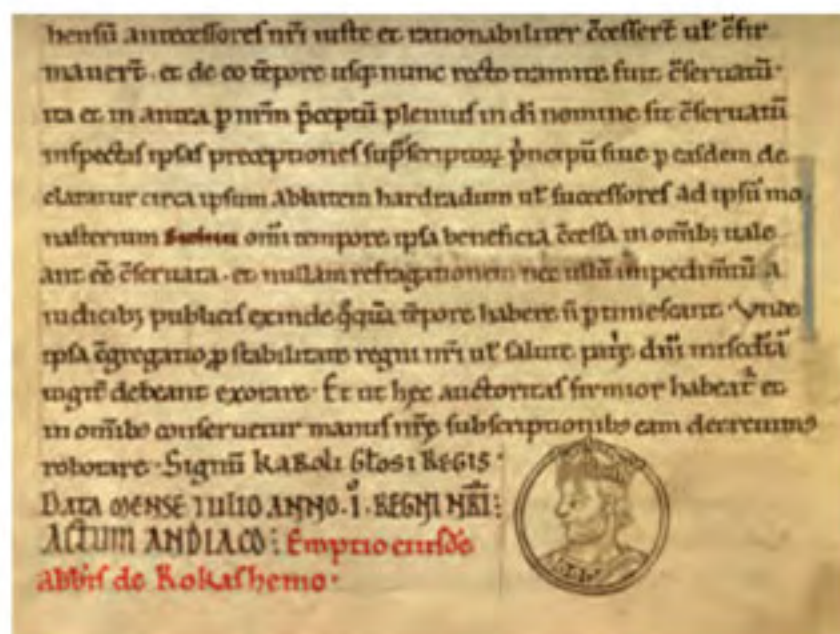 hensū antecessores nr̄i iuste et rationabiliter c̄cesser̄t ut̄ c̄fir
mauer̄t. et de eo t̄pore usq; nunc recto tramite fuit c̄seruatū.
ita et in antea p nr̄m p̄ceptū plenius in dī nomine sit c̄seruatū
inspectas ipsas preceptiones sup̄scriptoꝝ p̄ncipū siue p easdem de
claratur circa ipsum abbatem hardradum ut̄ successores ad ipsū mo
nasterium om̄i tempore ipsa beneficia c̄cessa in om̄ib; uale
ant eē c̄seruata. et nullam refragationem nec ullū impedim̄tū a
iudicib; publicis exinde q̊quā t̄pore habere ñ ptimescant. Vnde
ipsa c̄gregatio ꝓ stabilitate regni nr̄i ut̄ salute dn̄i mis̄cdiā
debeant exorare. Et ut hec auctoritas firmior habeat̄ et
in om̄ibꝰ conseruetur manus nr̄ę subscriptionibꝰ eam decreuimꝰ
roborare. Signū KAROLI GL̄OSI REGIS.
DATA MENSE IULIO ANNO. I̊. REGNI NR̄I:
ACTUM ANDIACO: Emptio eiusdē
abb̄is de Rokashemo.